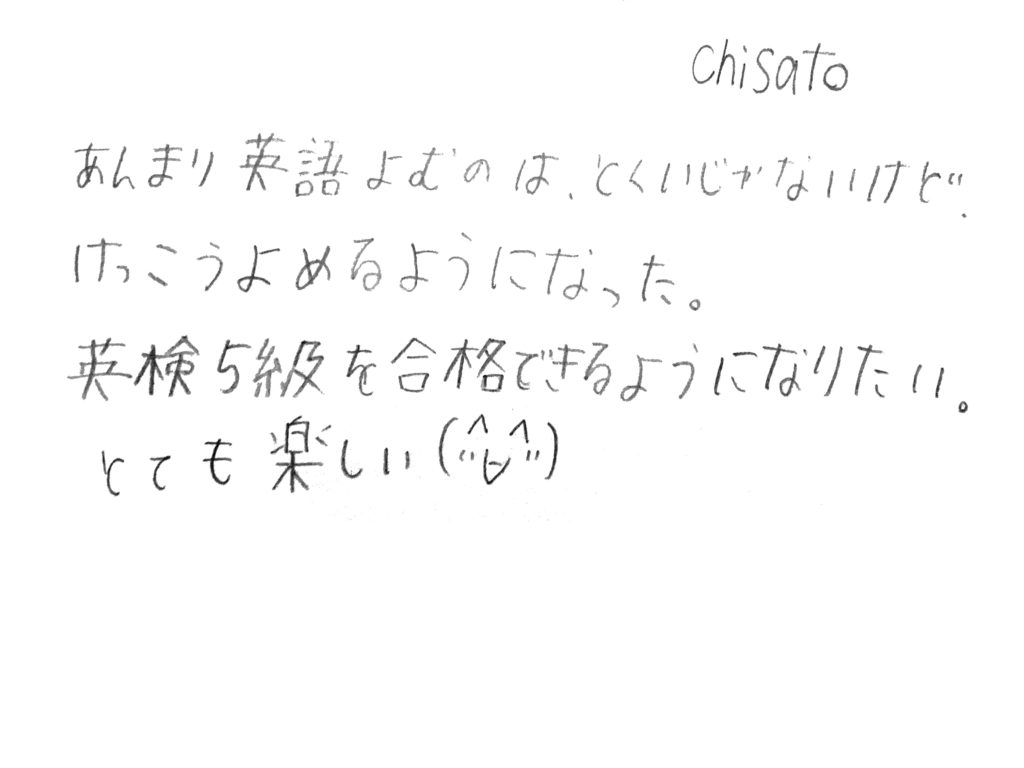 chisato
あんまり英語よむのは、とくいじゃないけど、
けっこうよめるようになった。
英検5級を合格できるようになりたい。
とても楽しい(^▽^)